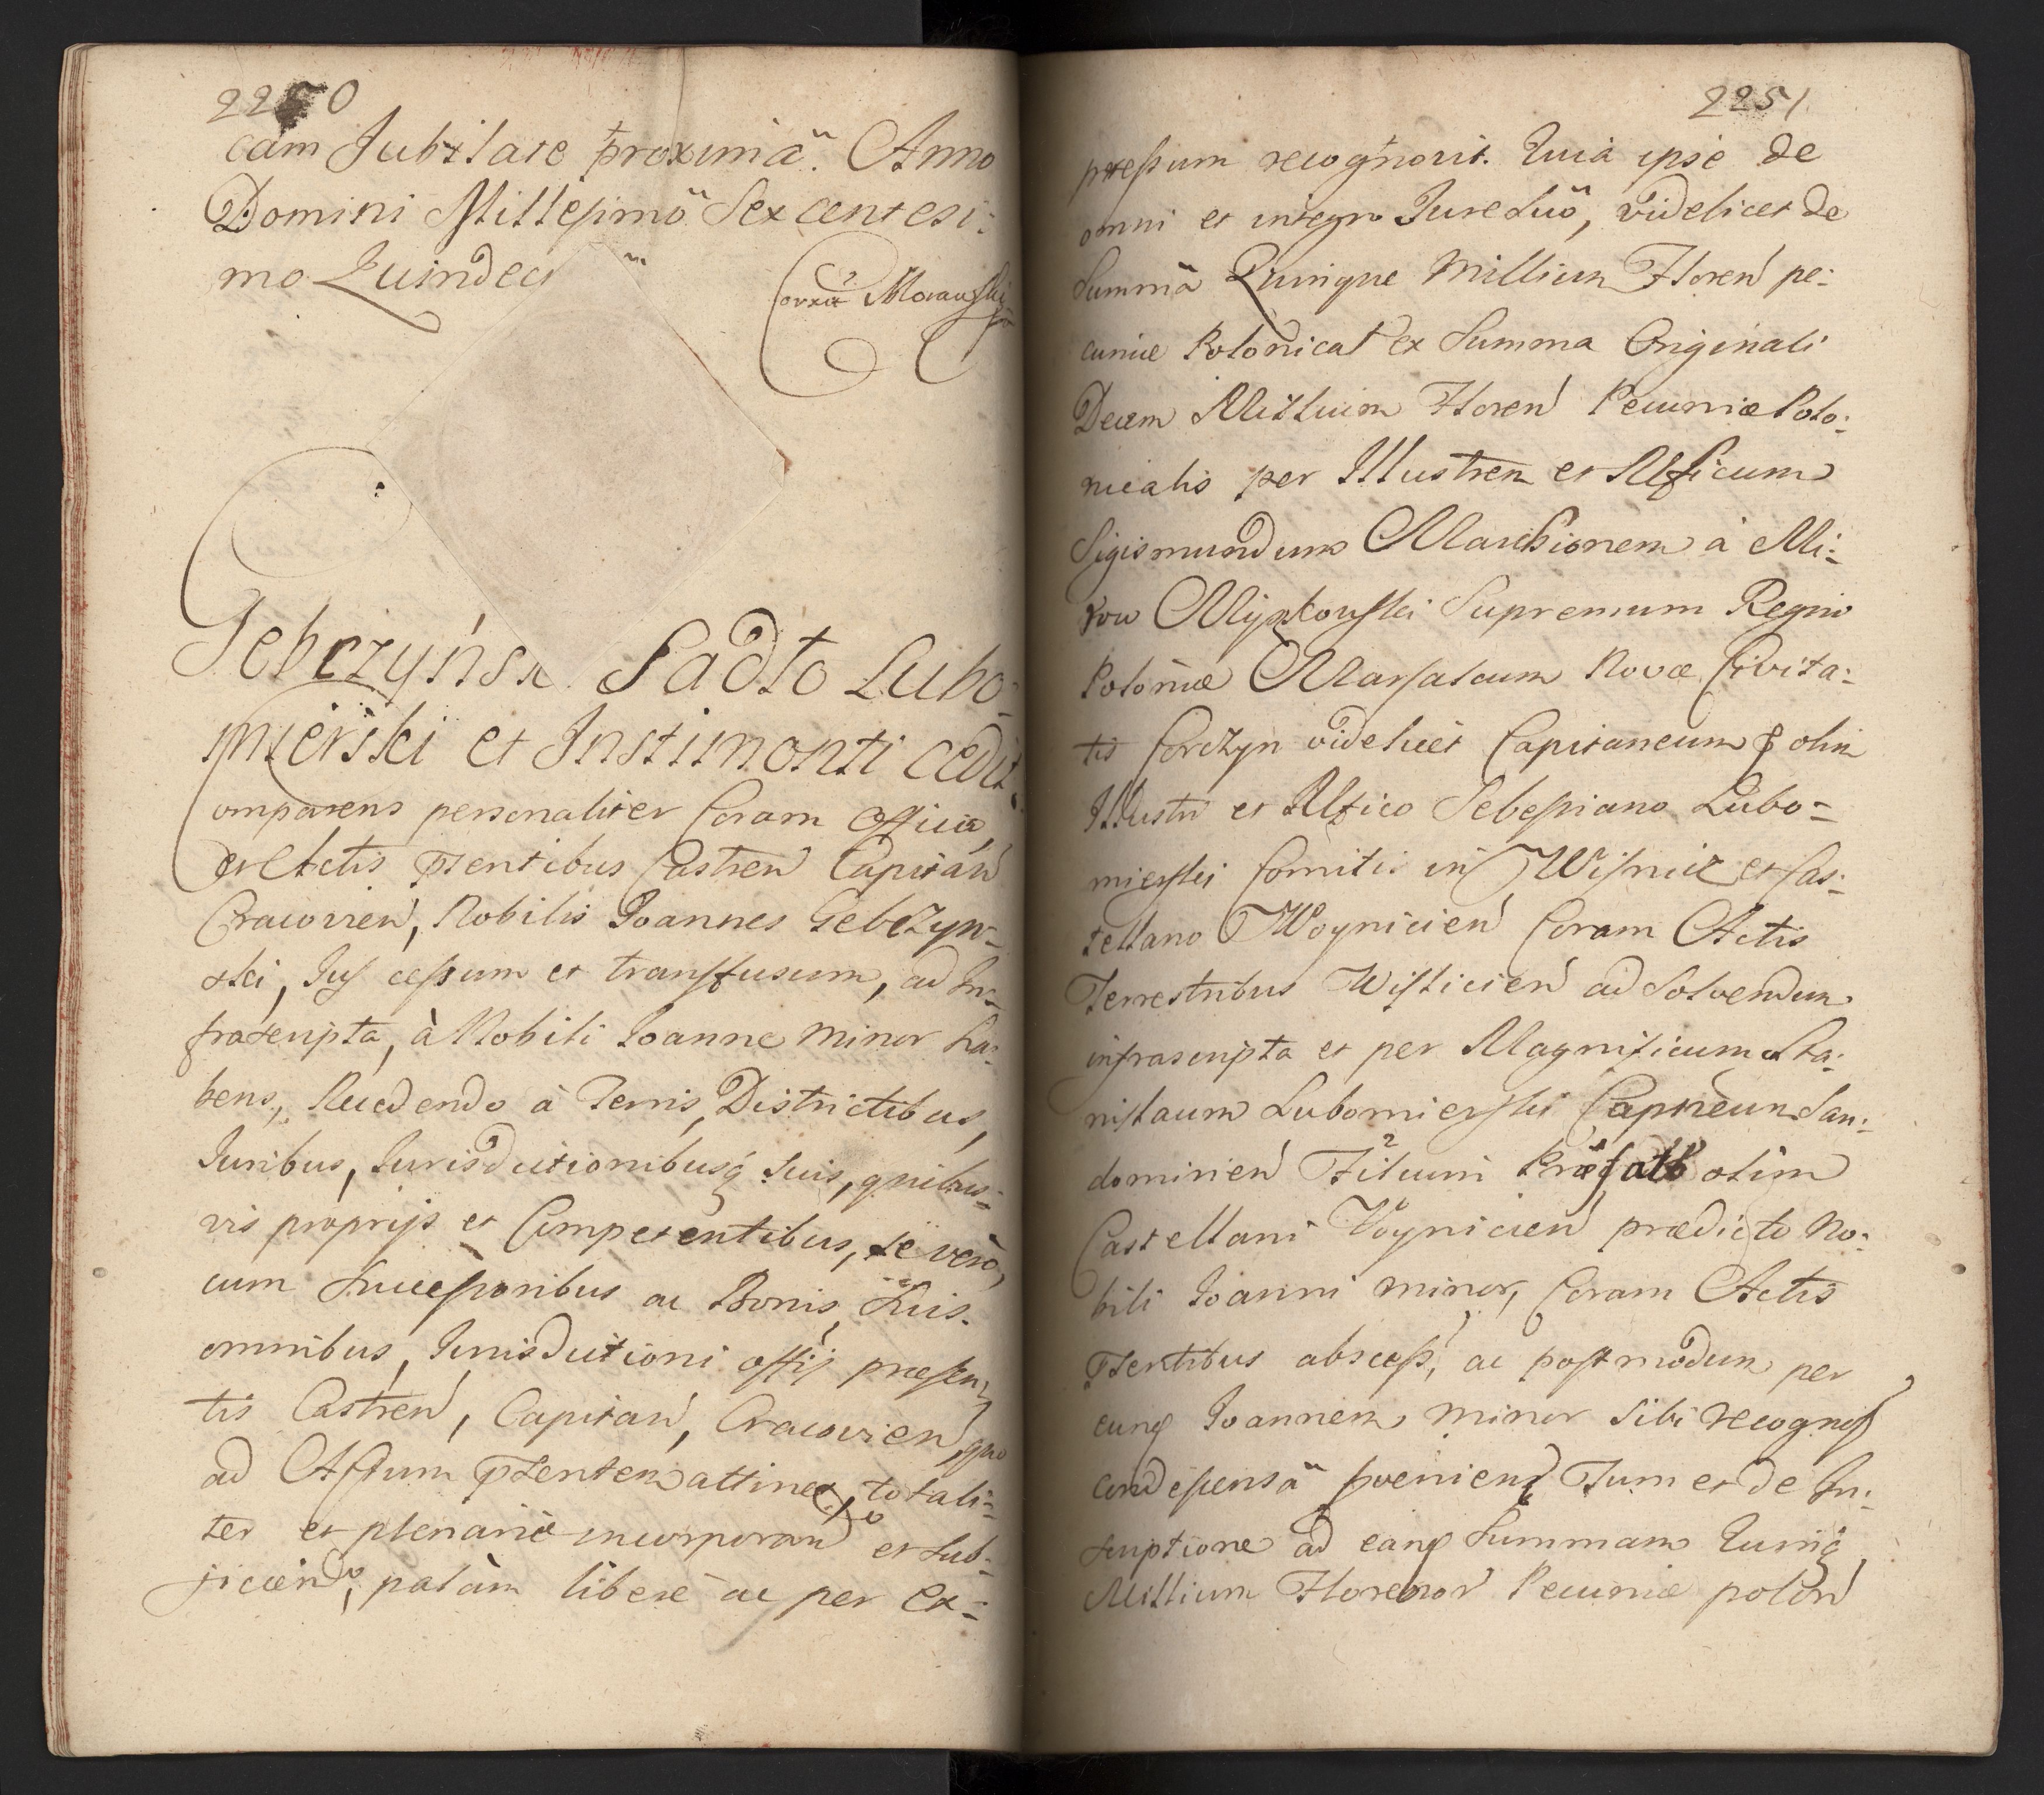 2250
cam Jubilate proximã. Anno
Domini Millesimõ Sexcentesi:
mo Quindeci
Corrã Morawski
Gebczyńsk Sadło Lubo:
mierski et Instimonti cedit
Comparens personaliter Coram Officio,
et Actis Pñtentibus Castren Capitan
Cracovien, Nobilis Joannes Gebczyn:
ski, Jus cessum et transfusum, ad In:
frascripta, à Nobili Joanne Minor ha:
bens, Recedendo à Terris, Districtibus,
Juribus, Jurisdictionibusq suis, quibus:
vis proprijs et Competentibus, se vero,
cum Successoribus ac Bonis Suis
omnibus, Jurisdictioni offij præsen:
tis Castren, Capitan, Cracovien, quo
ad Actum Pñtentem attinet, totali:
ter et plenarie incorporan et sub:
jiciendo, palàm liberè ac per ex:
2251
pressum recognovit. Quia ipse de
omni et integro Jure Suõ, videlicet de
Summã Quinque Millium Floren pe:
cuniæ Polonical ex Summa Originali
Decem Millium Floren Pecuniæ Polo:
nicalis per Illustrem et Mficum
Sigismundum Marchionem à Mi:
row Myszkowski Supremum Regni
Poloniæ Marsalcum Novæ Civita:
tis Corczyn videlicet Capitaneum olim
Illustri et Mfico Sebesiano Lubo=
mierski Comiti in Wisnicz et Cas:
tellano Woynicien Coram Actis
Terrestribus Wislicien ad Solvendum
infrascripta et per Magnificum Sta:
nislaum Lubomierski Capneum San:
domirien Filium Præfati olim
Castellani Voynicien prædicto No:
bili Joanni minor, Coram Actis
Pñtentibus abscess, ac postmodum per
eunq Joannem minor sibi recognos
condescensã proveniend Tum et de In:
scriptione ad eanq Summam Quinq
Millium Florenor Pecuniæ polon